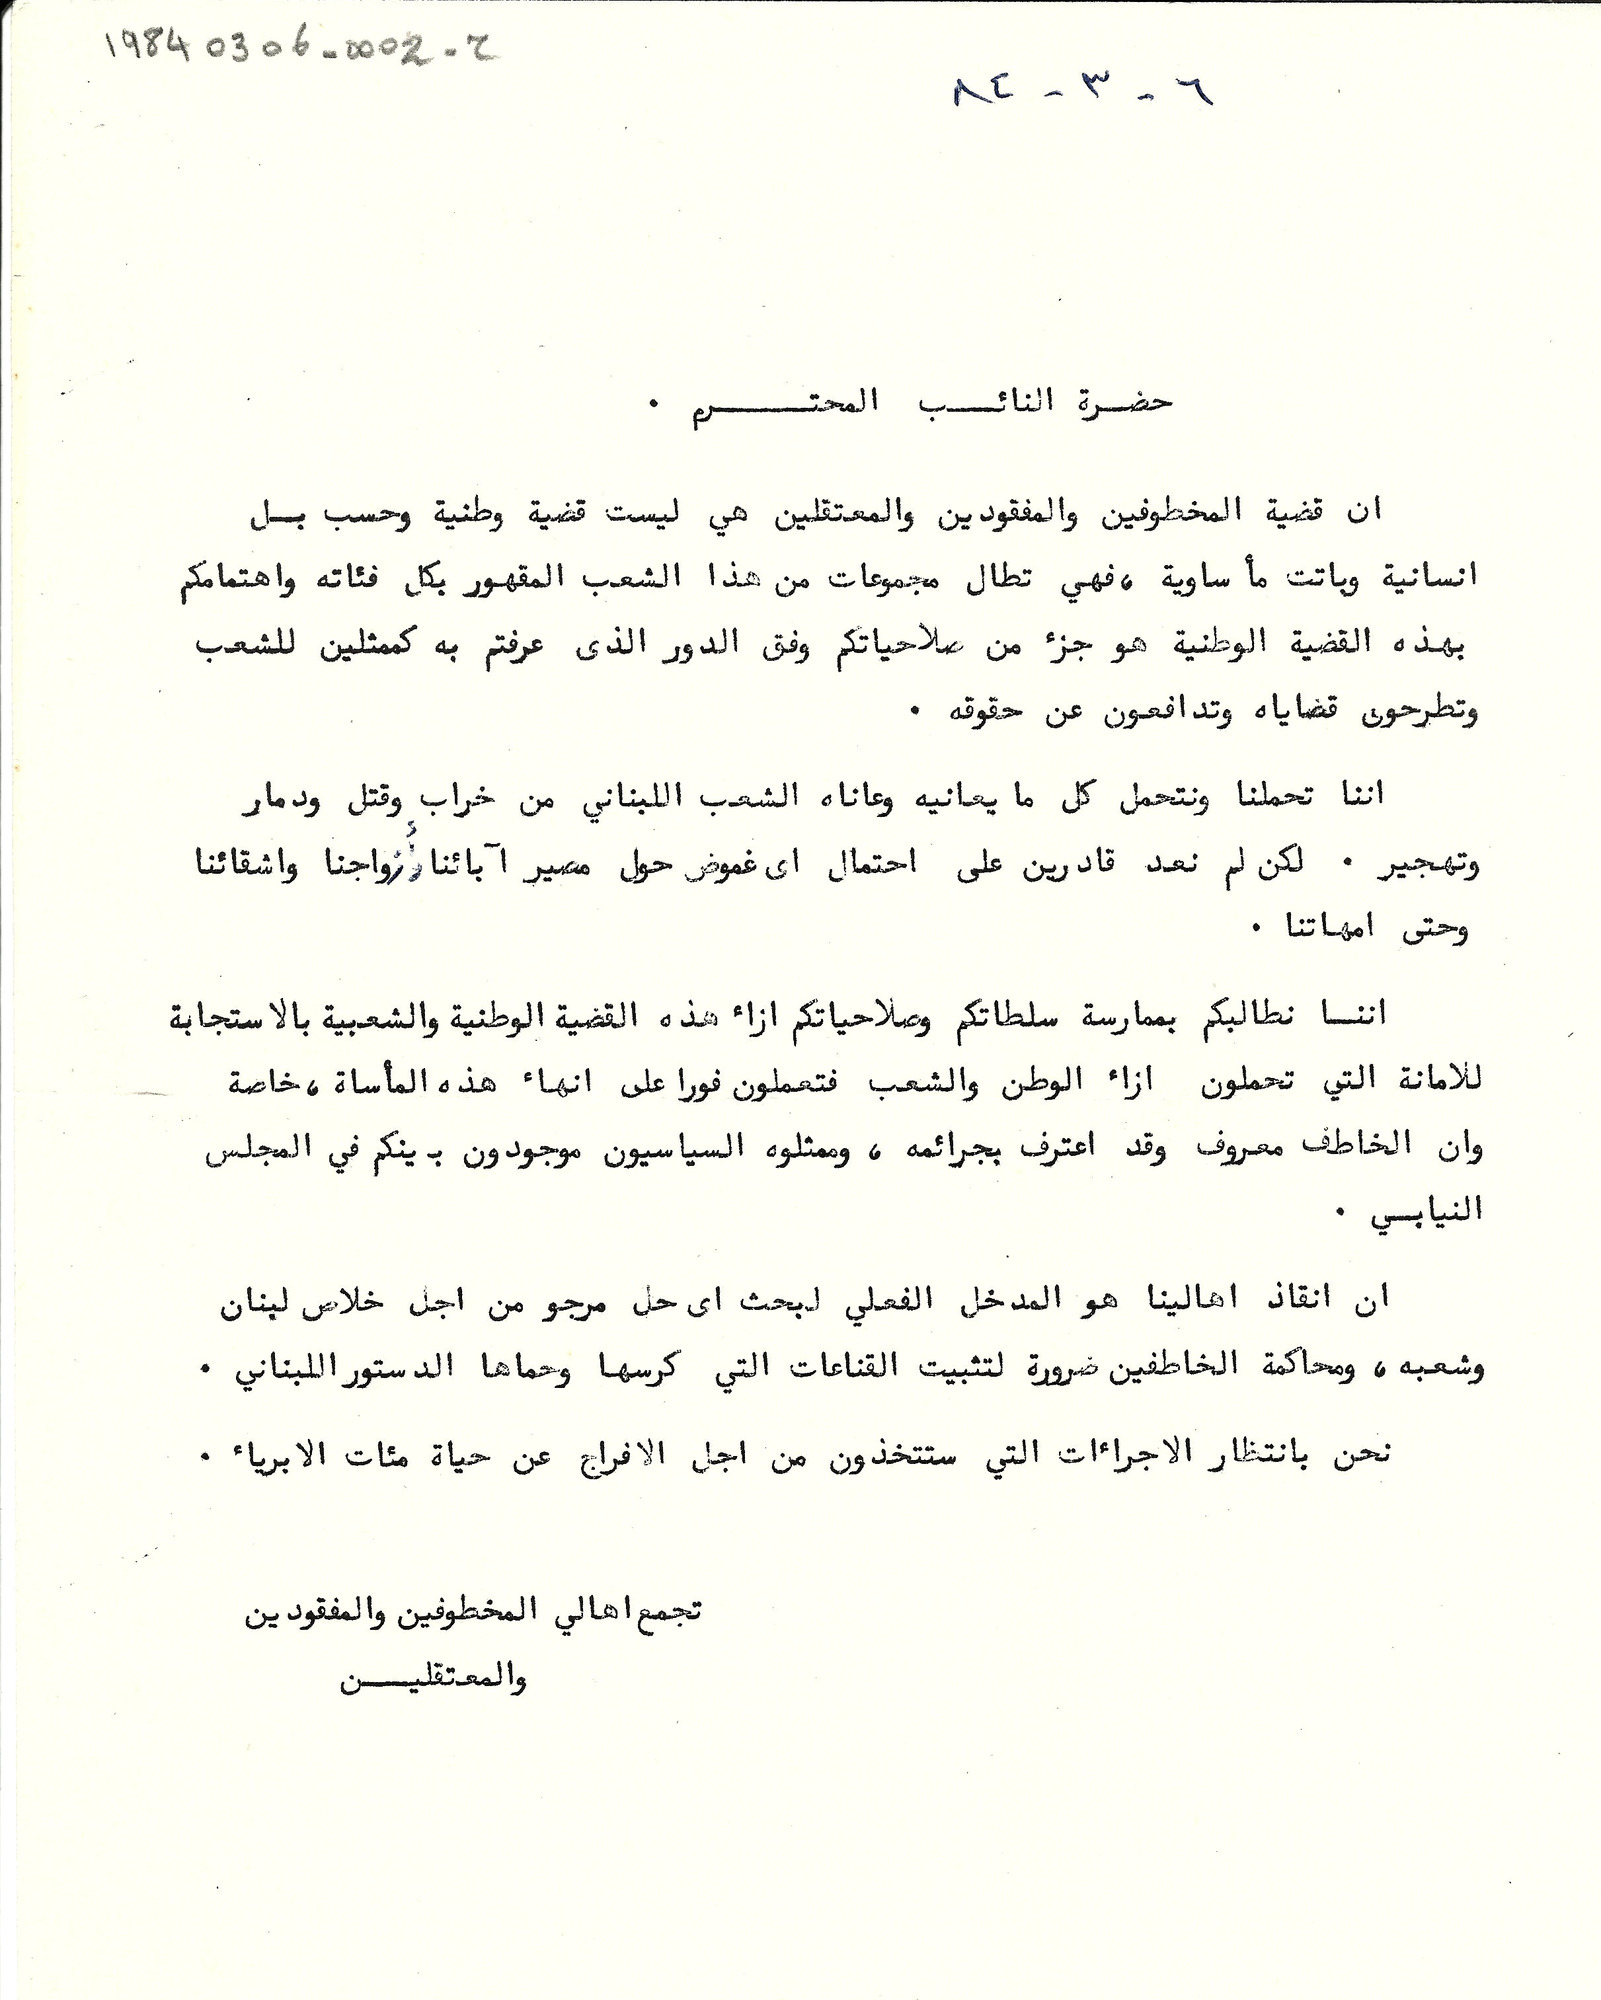 1984 0306-0002-ح
٦ - ٣ - ٨٤
حضرة النائب المحترم .
ان قضية المخطوفين والمفقودين والمعتقلين هي ليست قضية وطنية وحسب بل
انسانية وباتت مأساوية ، فهي تطال مجموعات من هذا الشعب المقهور بكل فئاته واهتمامكم
بهذه القضية الوطنية هو جزء من صلاحياتكم وفق الدور الذى عرفتم به كممثلين للشعب
وتطرحون قضاياه وتدافعون عن حقوقه .
اننا تحملنا ونتحمل كل ما يعانيه وعاناه الشعب اللبناني من خراب وقتل ودمار
وتهجير . لكن لم نعد قادرين على احتمال اى غموض حول مصير آبائنا وأزواجنا واشقائنا
وحتى امهاتنا .
اننا نطالبكم بممارسة سلطاتكم وصلاحياتكم ازاء هذه القضية الوطنية والشعبية بالاستجابة
للامانة التي تحملون ازاء الوطن والشعب فتعملون فورا على انهاء هذه المأساة ، خاصة
وان الخاطف معروف وقد اعترف بجرائمه ، وممثلوه السياسيون موجودون بينكم في المجلس
النيابي .
ان انقاذ اهالينا هو المدخل الفعلي لبحث اى حل مرجو من اجل خلاص لبنان
وشعبه ، ومحاكمة الخاطفين ضرورة لتثبيت القناعات التي كرسها وحماها الدستور اللبناني .
نحن بانتظار الاجراءات التي ستتخذون من اجل الافراج عن حياة مئات الابرياء .
تجمع اهالي المخطوفين والمفقودين
والمعتقلين